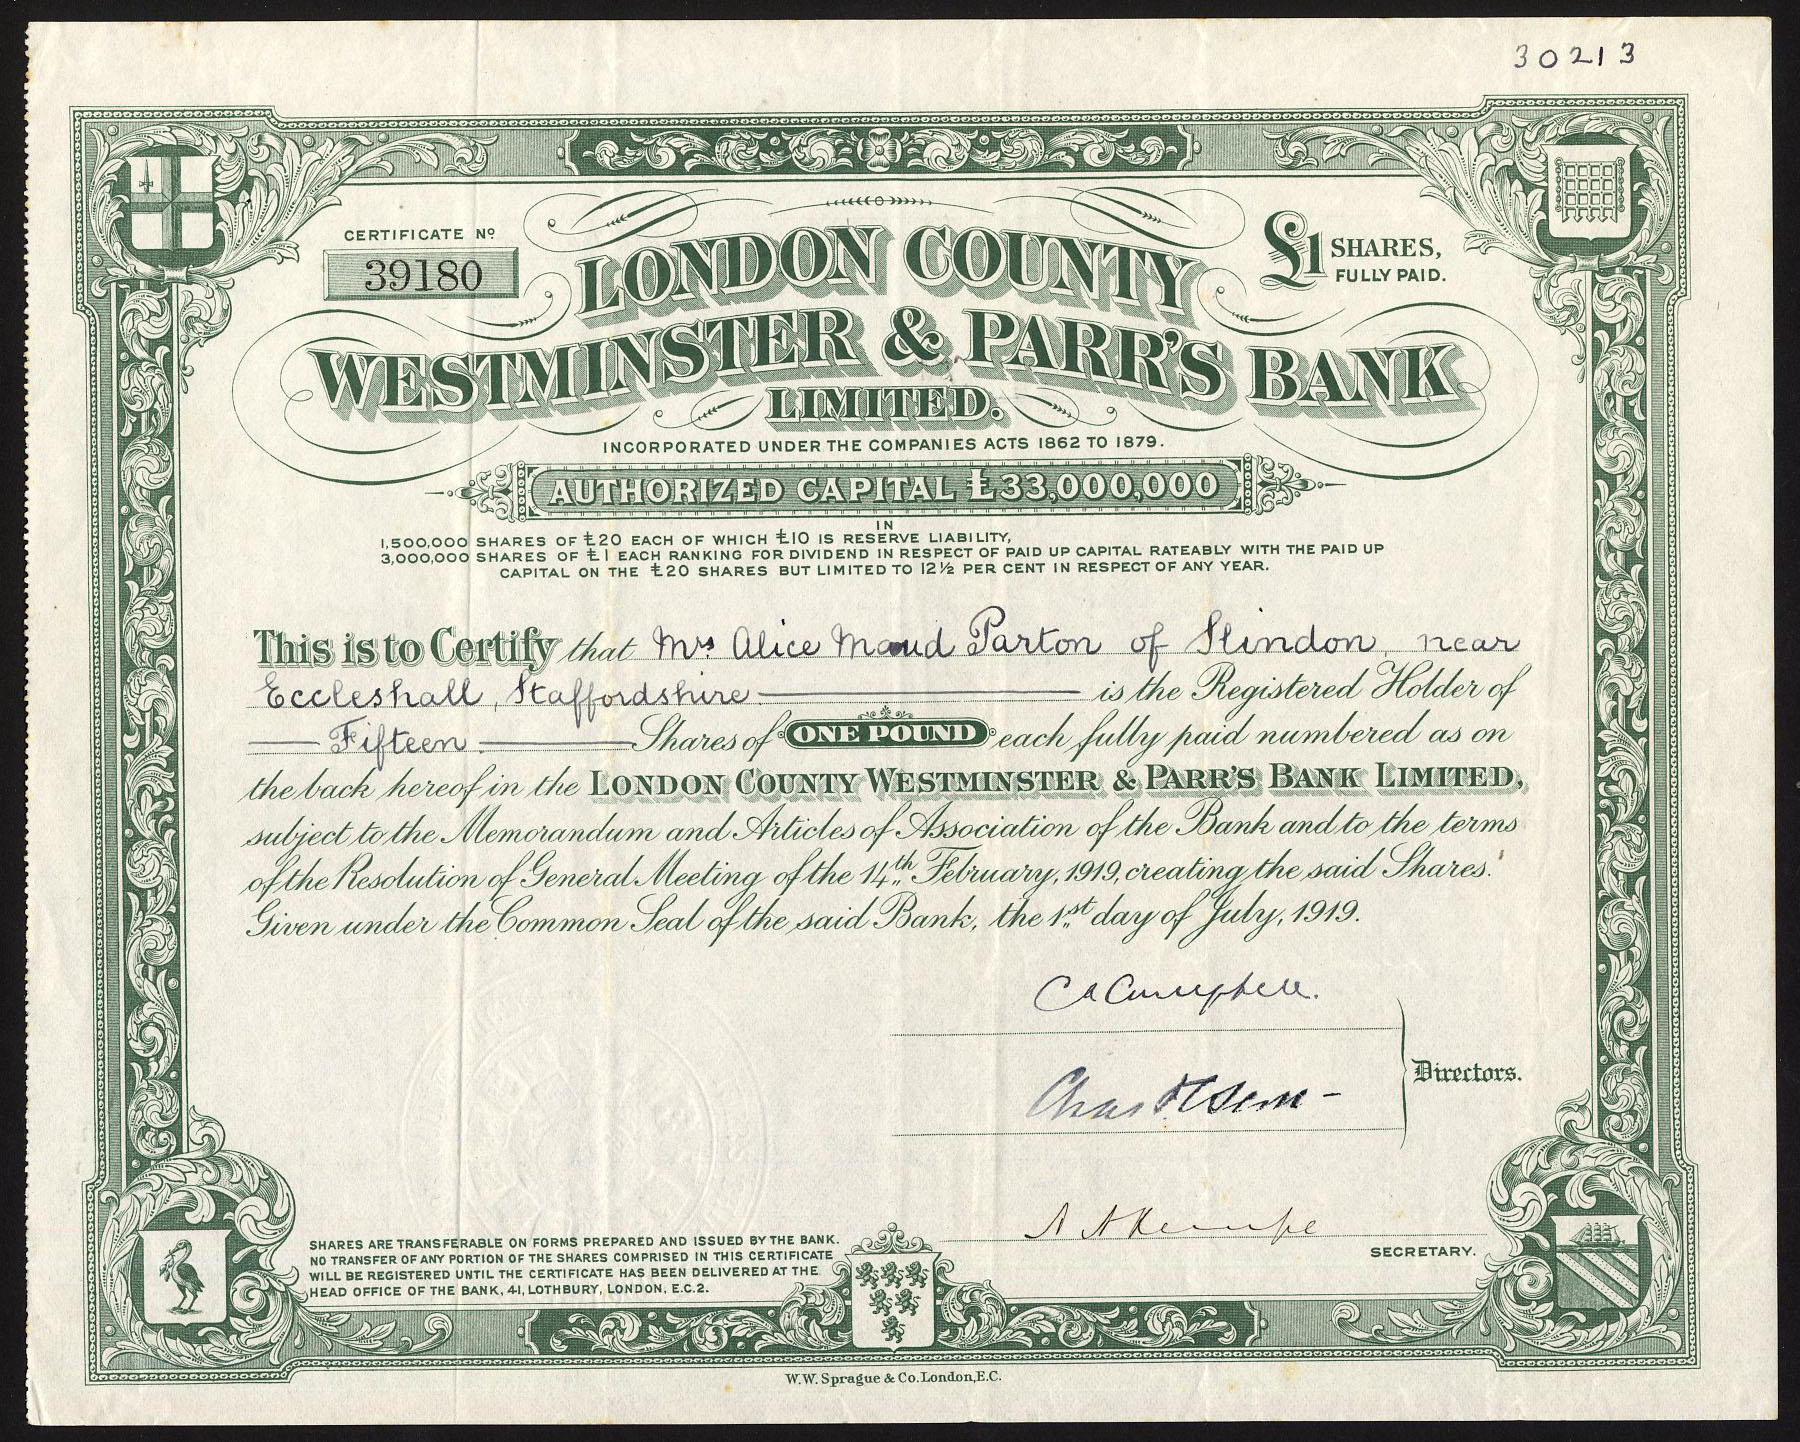 30213
CERTIFICATE Nº
39180
£1 SHARES,
FULLY PAID.
LONDON COUNTY
WESTMINSTER & PARR'S BANK
LIMITED.
INCORPORATED UNDER THE COMPANIES ACTS 1862 TO 1879.
AUTHORIZED CAPITAL £33,000,000
IN
1,500,000 SHARES OF £20 EACH OF WHICH £10 IS RESERVE LIABILITY,
3,000,000 SHARES OF £1 EACH RANKING FOR DIVIDEND IN RESPECT OF PAID UP CAPITAL RATEABLY WITH THE PAID UP
CAPITAL ON THE £20 SHARES BUT LIMITED TO 12½ PER CENT IN RESPECT OF ANY YEAR.
This is to Certify that Mrs Alice Maud Parton of Slindon, near
Eccleshall, Staffordshire is the Registered Holder of
Fifteen Shares of ONE POUND each fully paid numbered as on
the back hereof in the LONDON COUNTY WESTMINSTER & PARR'S BANK LIMITED,
subject to the Memorandum and Articles of Association of the Bank and to the terms
of the Resolution of General Meeting of the 14th February, 1919, creating the said Shares.
Given under the Common Seal of the said Bank, the 1st day of July, 1919.
C A Campbell.
Directors.
SECRETARY.
SHARES ARE TRANSFERABLE ON FORMS PREPARED AND ISSUED BY THE BANK.
NO TRANSFER OF ANY PORTION OF THE SHARES COMPRISED IN THIS CERTIFICATE
WILL BE REGISTERED UNTIL THE CERTIFICATE HAS BEEN DELIVERED AT THE
HEAD OFFICE OF THE BANK, 41, LOTHBURY, LONDON, E.C.2.
W.W. Sprague & Co. London, E.C.